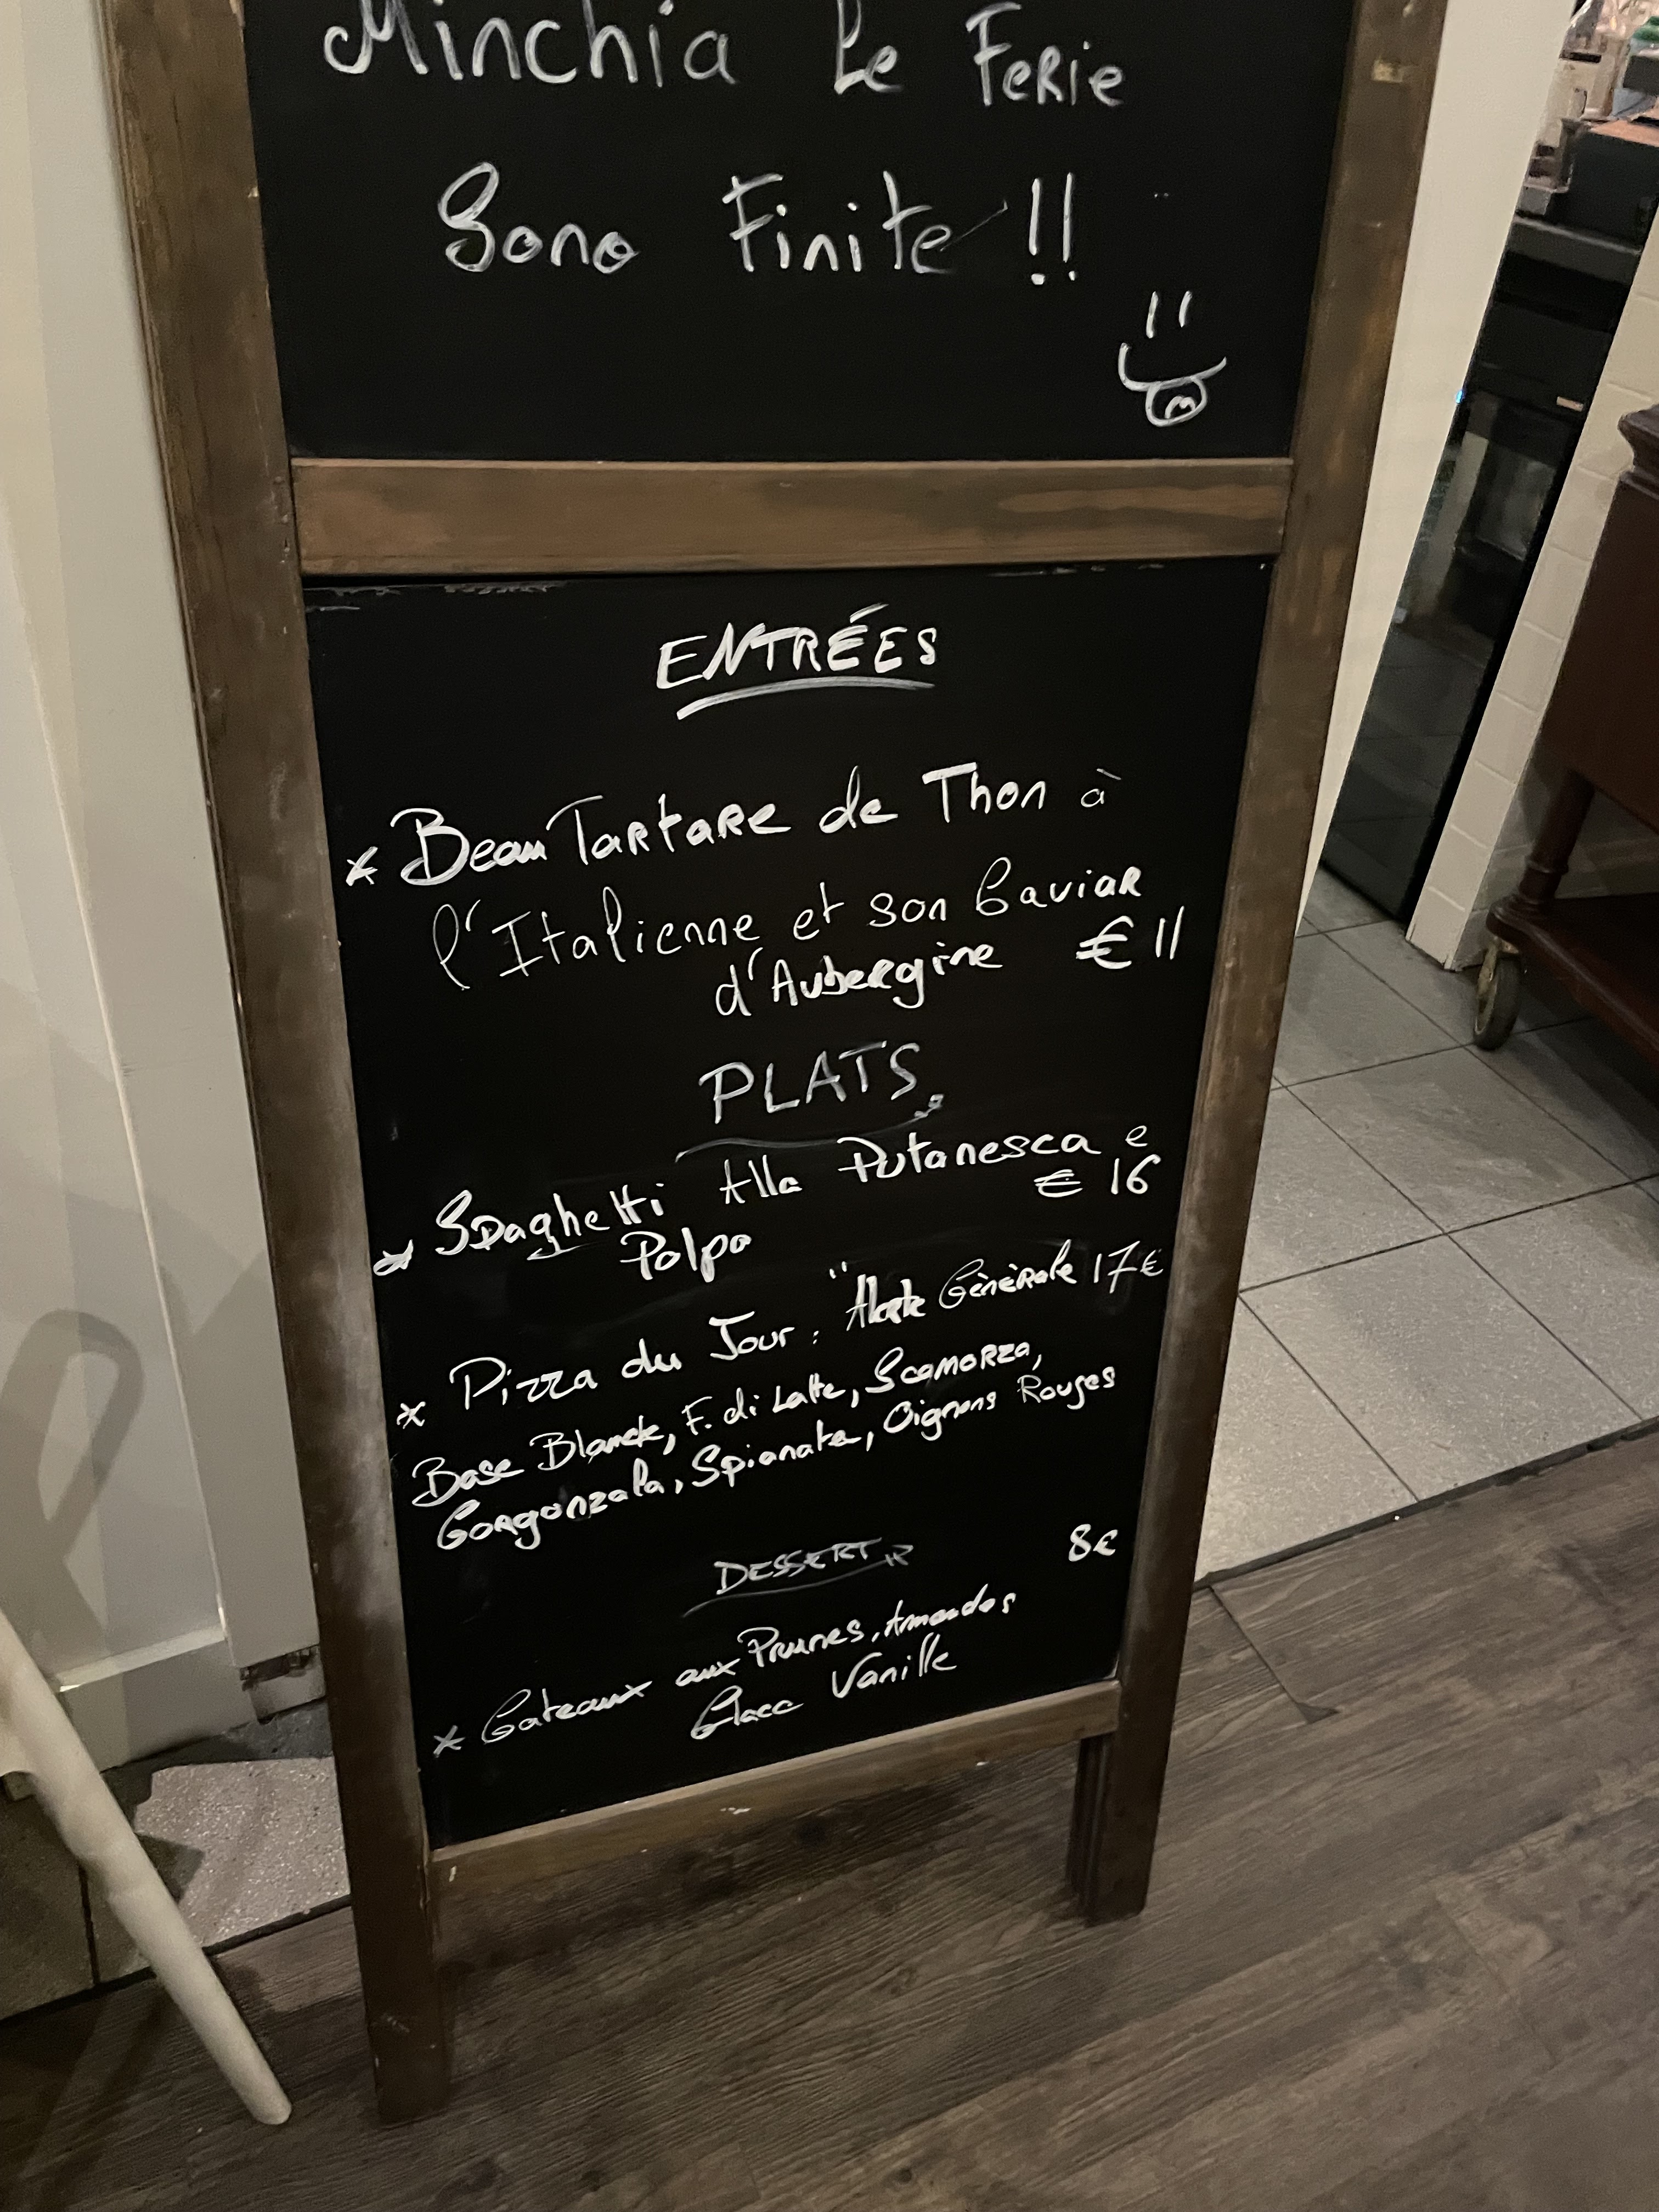 Minchia Le Ferie
Sono Finite !!
ENTRÉES
* Beau Tartare de Thon à
l'Italienne et son Caviar
d'Aubergine € 11
PLATS
* Spaghetti Alla Putanesca e
Polpo € 16
* Pizza du Jour : "Alerte Génèrale 17€
Base Blanche, F. di Latte, Scamorza,
Gorgonzola, Spianata, Oignons Rouges
DESSERT 8€
* Gateaux aux Prunes, Amandes
Glace Vanille